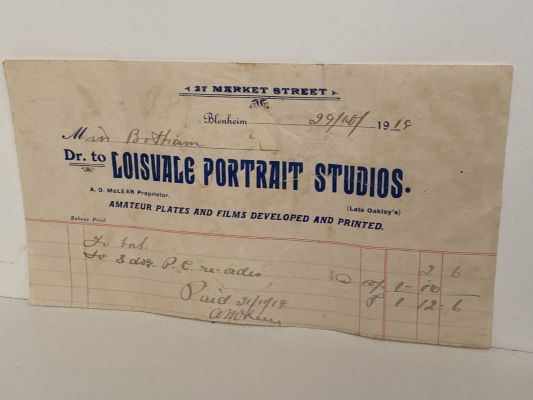 27 MARKET STREET
Blenheim 29/10/ 1919
Miss Botham
Dr. to LOISVALE PORTRAIT STUDIOS.
A. D. McLEAR Proprietor. (Late Oakley's)
AMATEUR PLATES AND FILMS DEVELOPED AND PRINTED.
To bal. 2 6
To 3 doz. P. C. re-order @ 10/- 1 - 10
£ 1 12 - 6
Paid